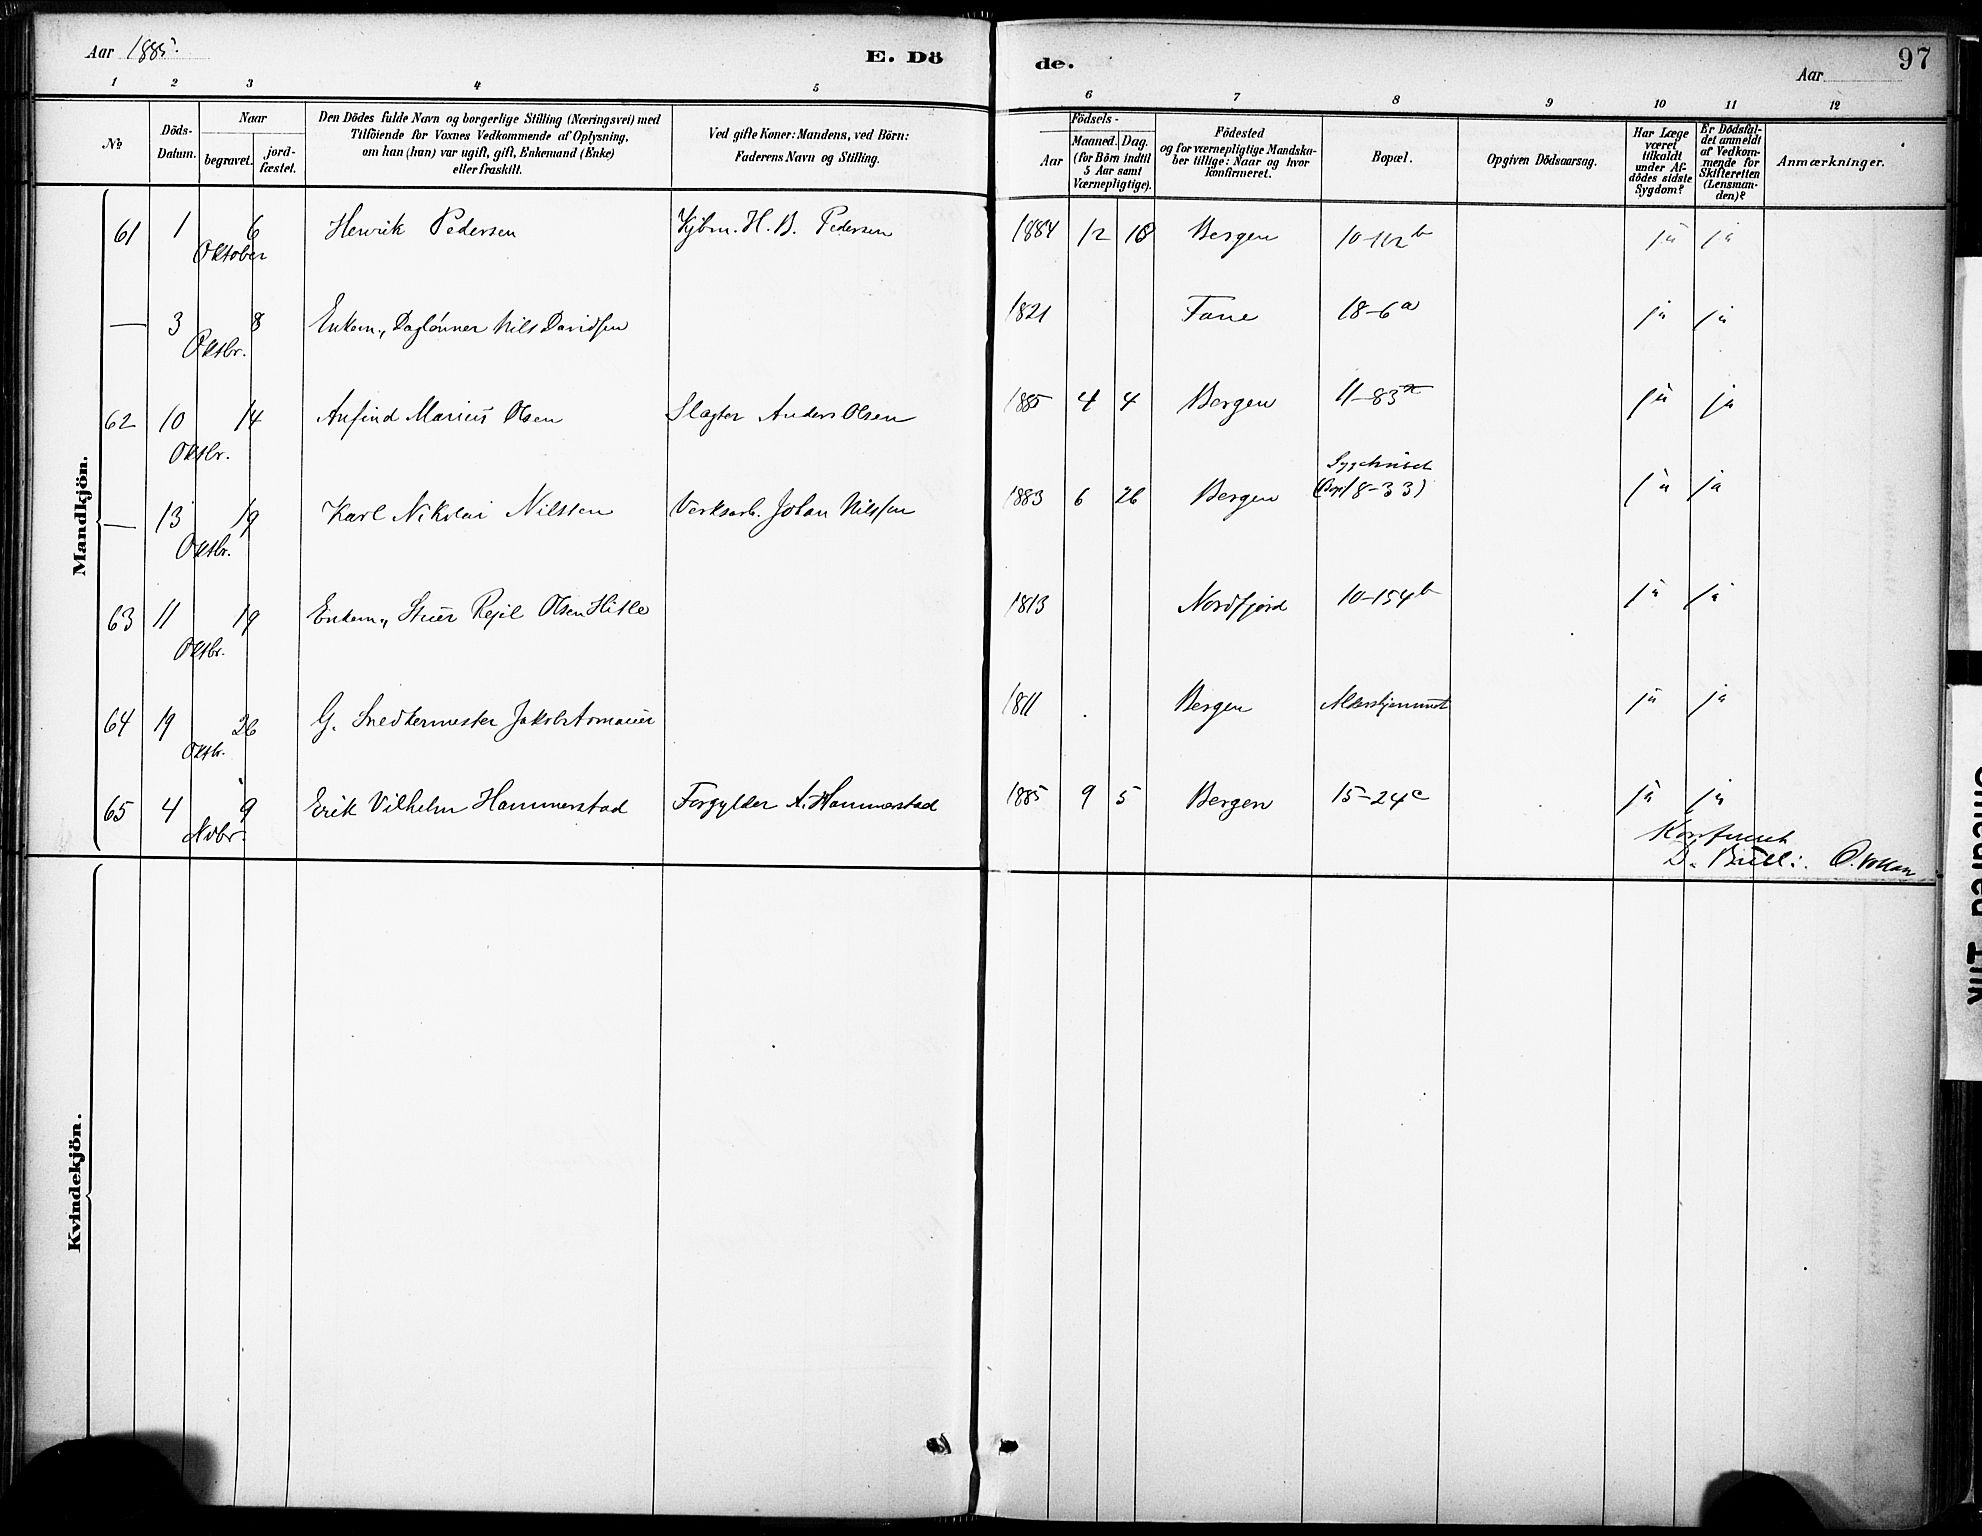 Aar 1885.
E. Dö
de.
Aar
97
1 2 3 4 5 6 7 8 9 10 11 12
No
Döds-
Datum.
Naar
begravet.
jord-
fæstet.
Den Dödes fulde Navn og borgerlige Stilling (Næringsvei) med
Tilföiende for Voxnes Vedkommende af Oplysning,
om han (hun) var ugift, gift, Enkemand (Enke)
eller fraskilt.
Ved gifte Koner: Mandens, ved Börn:
Faderens Navn og Stilling.
Födsels-
Aar
Maaned. Dag.
(for Börn indtil
5 Aar samt
Værnepligtige).
Födested
og for værnepligtige Mandska-
ber tillige: Naar og hvor
konfirmeret.
Bopæl.
Opgiven Dödsaarsag.
Har Læge
været
tilkaldt
under Af-
dödes sidste
Sygdom?
Er Dödsfal-
det anmeldt
af Vedkom-
mende for
Skifteretten
(Lensman-
den)?
Anmærkninger.
Mandkjön.
61 1 6 Henrik Pedersen Kjbm. H. B. Pedersen 1884 12 18 Bergen 10-112 b ja ja
Oktober
— 3 8 Enkem., Daglönner Nils Davidsen 1821 Fane 18-6 a ja ja
Oktbr.
62 10 14 Anfind Marius Olsen Slagter Anders Olsen 1885 4 4 Bergen 11-83 a ja ja
Oktbr.
Sygehuset
— 13 19 Karl Nikolai Nilsen Verksarb. Johan Nilssen 1883 6 26 Bergen (Bop. 18-33) ja ja
Oktbr.
63 11 19 Enkem., Olsen 1813 Nordfjord 10-154 b ja ja
Oktbr.
64 19 26 G. Snedkermester Jakob 1811 Bergen Alderhjemmet ja ja
Oktbr.
65 4 9 Erik Vilhelm Hammerstad Forgylder A. Hammerstad 1885 9 5 Bergen 15-24 c ja ja
Nvbr.
D. Bull:.
Kvindekjön.